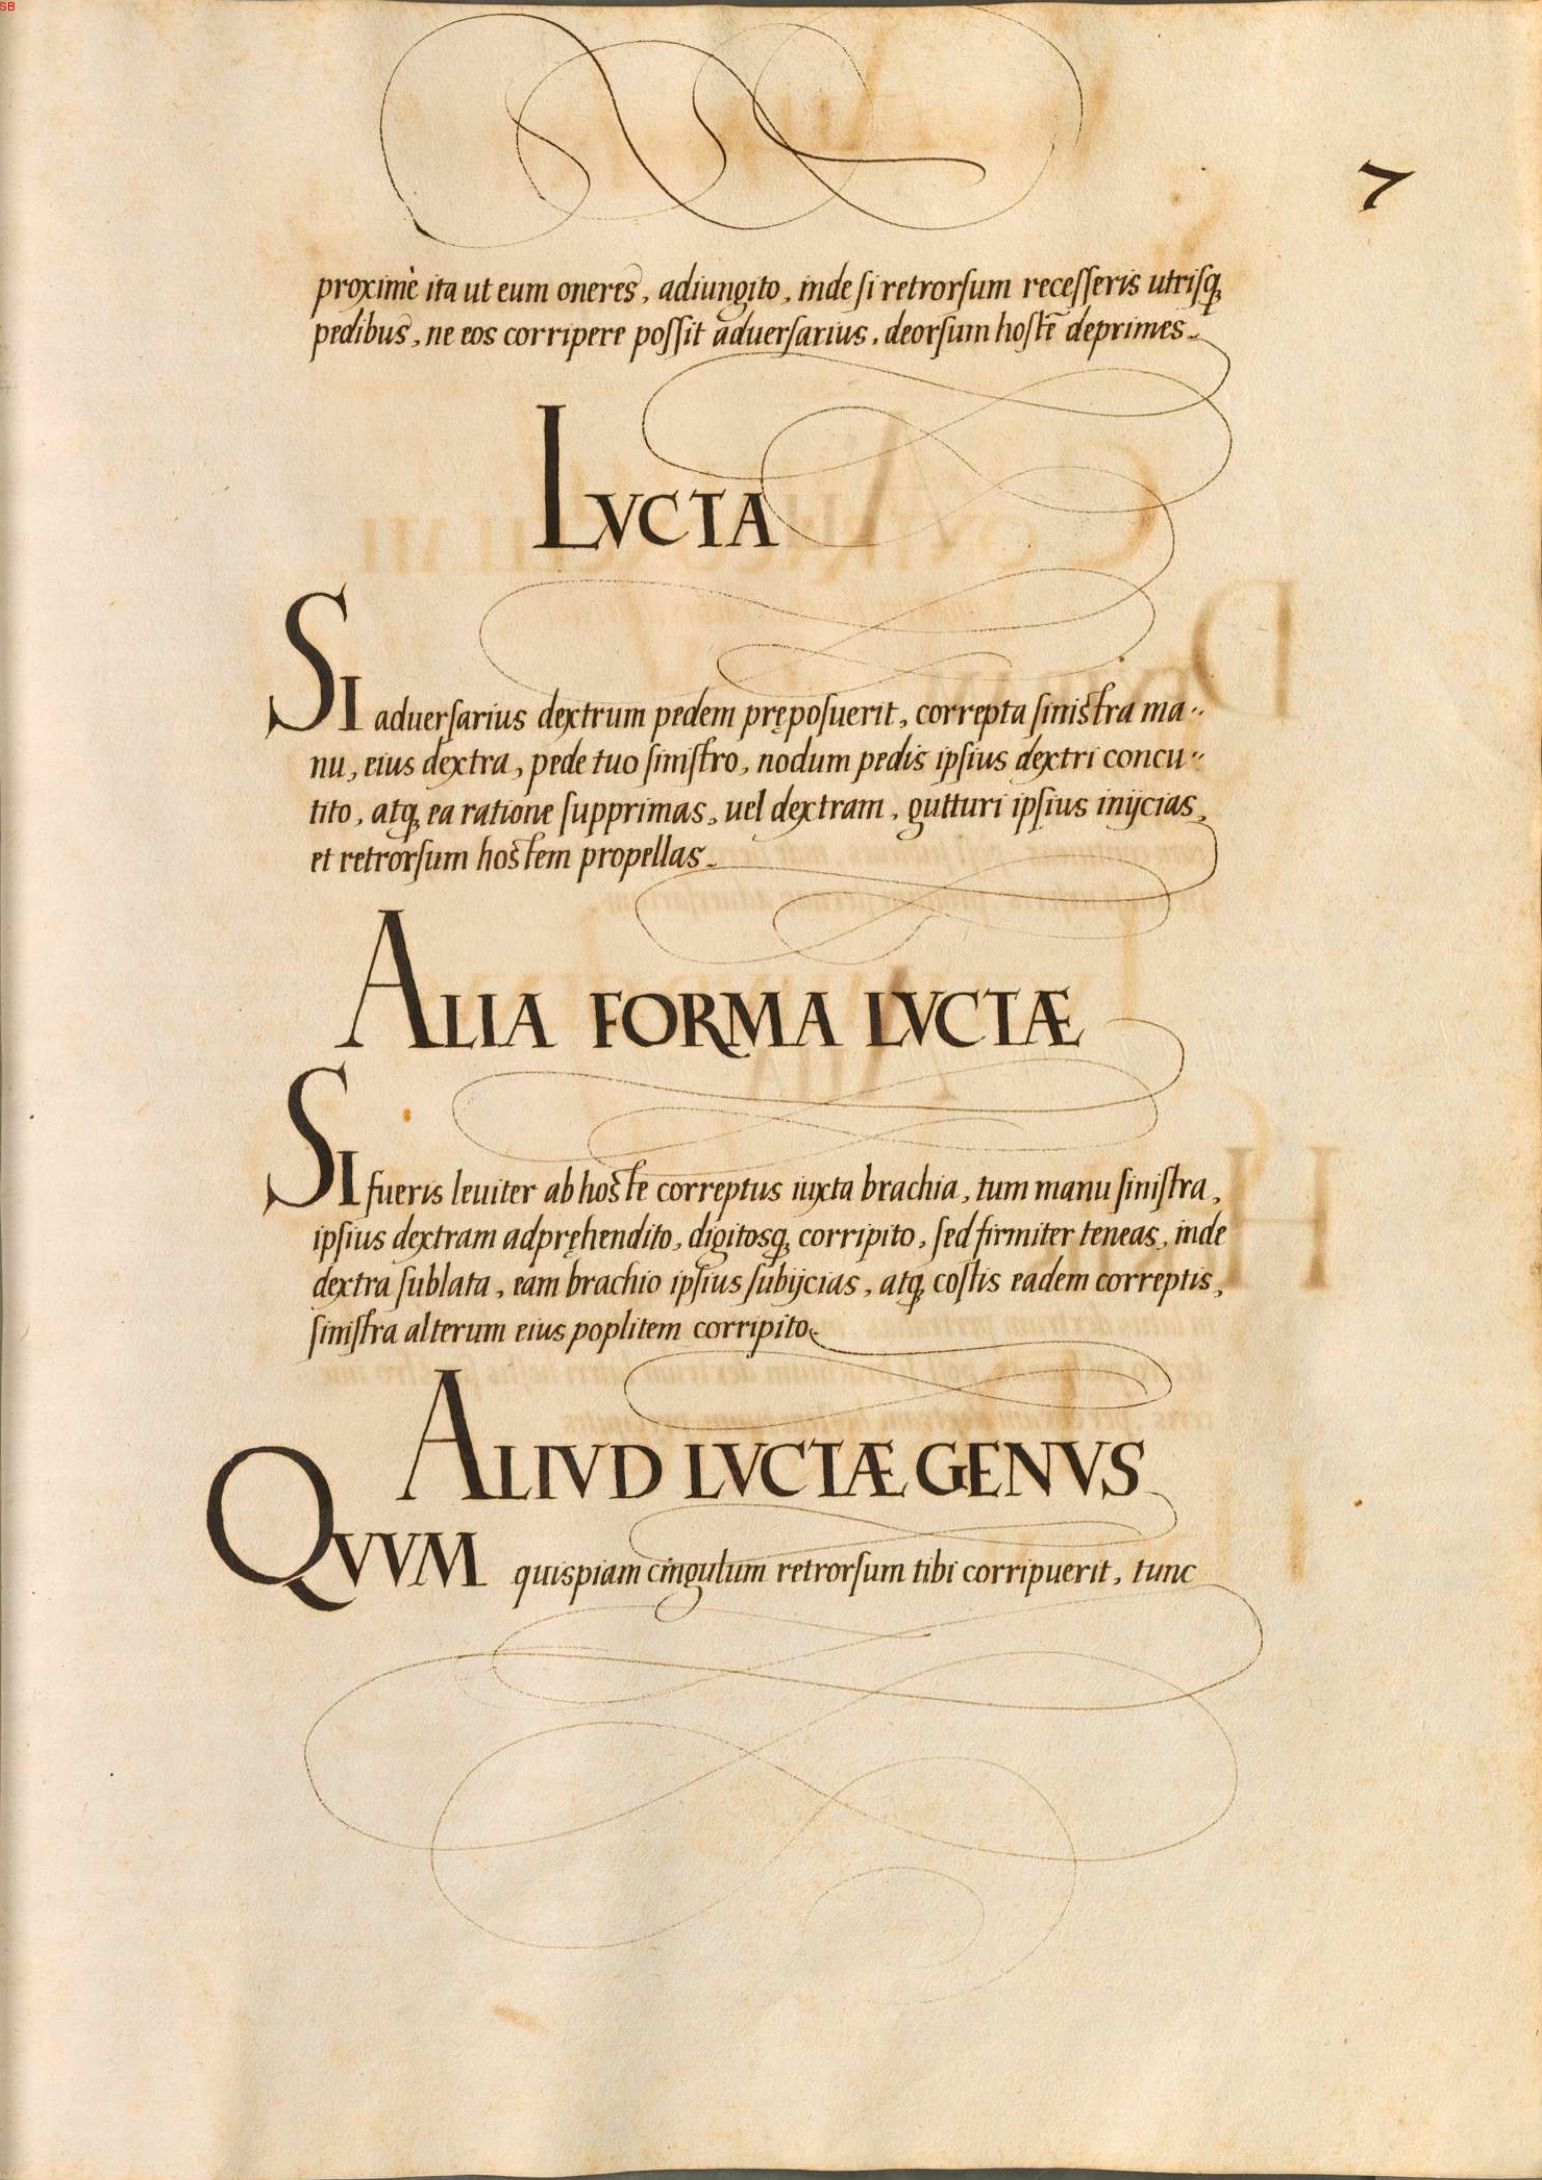 SB
7
proximè ita ut eum oneres, adiungito, inde si retrorsum recesseris utrisq;
pedibus, ne eos corripere possit aduersarius, deorsum hostē deprimes.
LVCTA
SI aduersarius dextrum pedem pręposuerit, correpta sinistra ma-
nu, eius dextra, pede tuo sinistro, nodum pedis ipsius dextri concu-
tito, atq; ea ratione supprimas, uel dextram, gutturi ipsius inijcias,
et retrorsum hostem propellas.
ALIA FORMA LVCTÆ
SI fueris leuiter ab hoste correptus iuxta brachia, tum manu sinistra,
ipsius dextram adpręhendito, digitosq; corripito, sed firmiter teneas, inde
dextra sublata, eam brachio ipsius subijcias, atq; costis eadem correptis,
sinistra alterum eius poplitem corripito.
ALIVD LVCTÆ GENVS
QVVM quispiam cingulum retrorsum tibi corripuerit, tunc